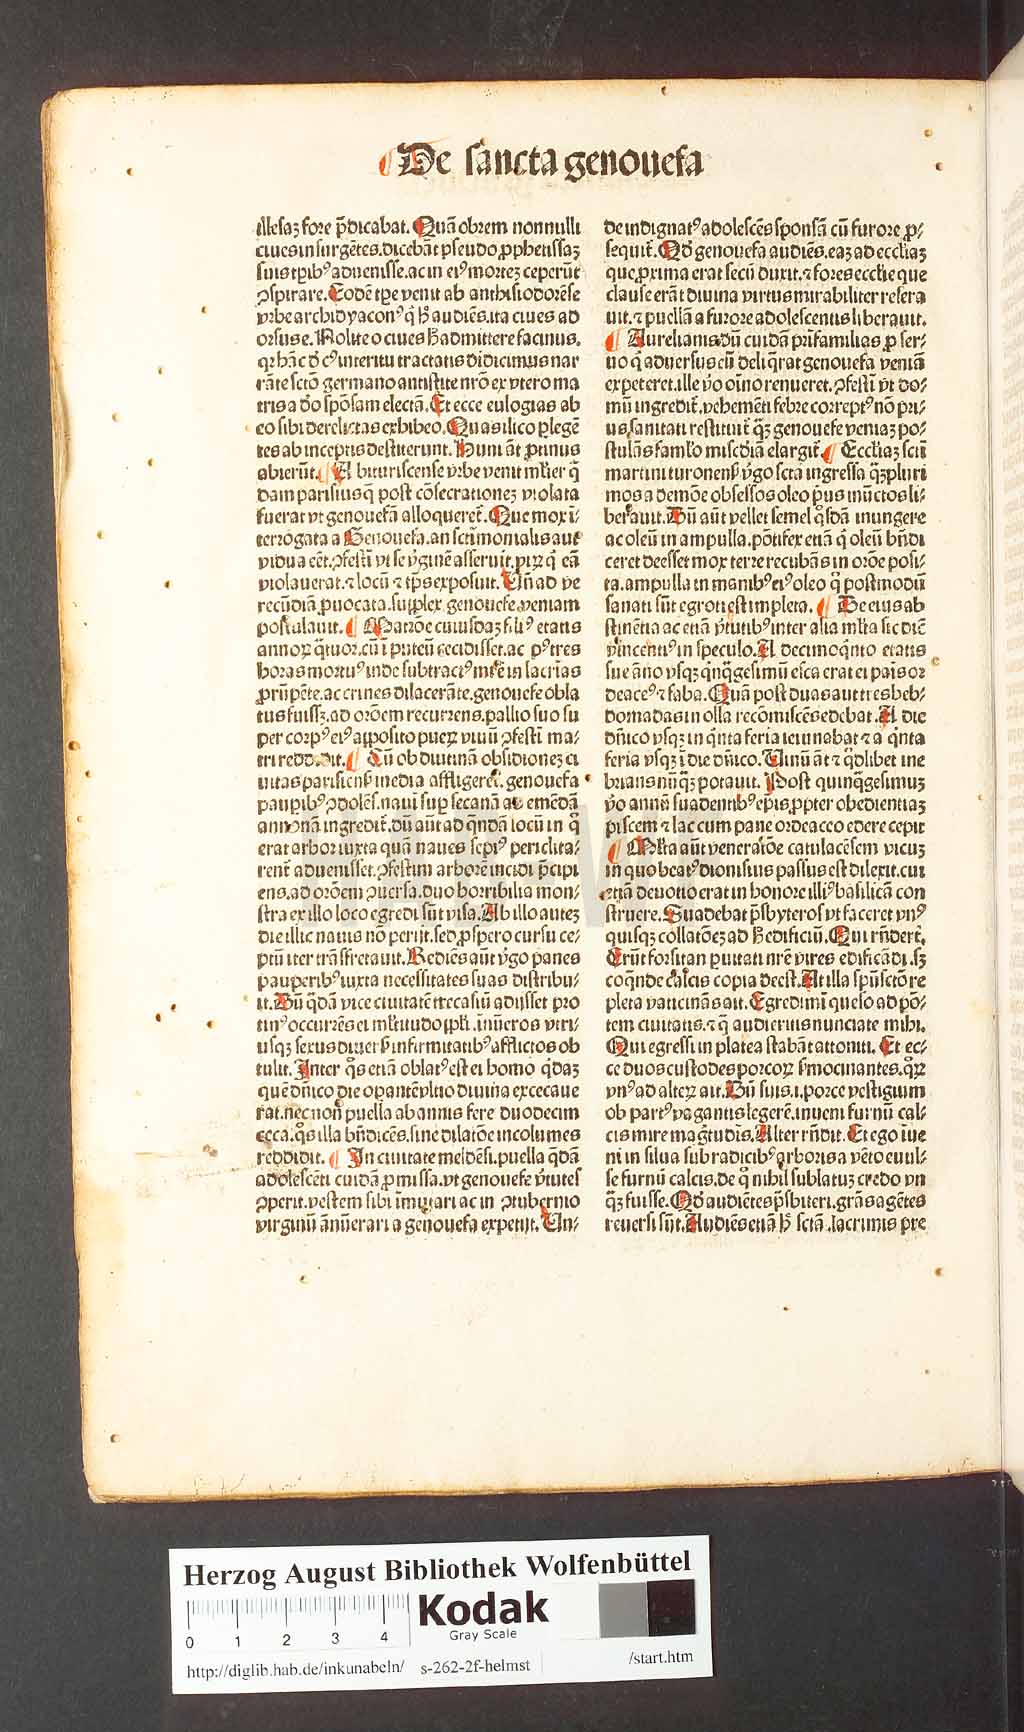 De sancta genouefa
illesaꝫ fore p̄dicabat. Quā obrem nonnulli
ciues insurgētes. dicebāt pseudo ꝓphetissaꝫ
suis tꝑibꝰ aduenisse. ac in eiꝰ morteꝫ ceperūt
ꝯspirare. Eodē tꝑe venit ab anthisiodorēse
vrbe archidyaconꝰ q̇ h̄ audiēs. ita ciues ad
orsus e. Nolite o ciues h̄ admittere facinus.
qꝛ hāc d̄ cꝰ interitu tractatis didicimus nar
rāte sctō germano antistite nrō ex vtero ma
tris a deo spōsam electā. Et ecce eulogias ab
eo sibi derelictas exhibeo. Quas ilico ꝑlegē
tes ab inceptis destiterunt. Huni āt ꝓtinus
abierūt. A bituriscense vrbe venit ml̄ier q̄
dam parisius q̄ post cōsecrationeꝫ violata
fuerat vt genouefā alloqueret̄. Que mox ī
terrogata a Genouefa. an sctīmonialis aut
vidua eēt. ꝯfestī vt se ỽgīnē asseruit. virꝫ q̇ eā
violauerat. ⁊ locū ⁊ tp̄s exposuit. Vn̄ ad ve
recūdiā ꝓuocata. supplex genouefe veniam
postulauit. Matrōe cuiusdaꝫ filiꝰ etatis
annoꝝ q̈tuor. cū ī puteū cecidisset. ac pꝰ tres
horas mortuꝰ inde subtractꝰ mr̄e in lacrīas
ꝓrūpēte. ac crines dilacerāte. genouefe obla
tus fuissꝫ. ad orōem recurrens. pallio suo su
per corpꝰ eiꝰ apposito pueꝝ viuū ꝯfestī ma⸗
tri reddidit. Cū ob diuinā obsidioneꝫ ci
uitas parisiens̄ inedia affligeret̄. genouefa
paupibꝰ ꝯdolēs. nauī sup secanā ad emēdā
annonā ingredit̄. dū aūt ad q̄ndā locū in q̊
erat arbor iuxta quā naues sepiꝰ periclita⸗
rent̄ aduenisset. ꝯfestim arborē incidi p̄cipi
ens. ad orōem ꝯuersa. duo horribilia mon⸗
stra ex illo loco egredi sūt visa. Ab illo auteꝫ
die illic nauis nō perijt. sed ꝓspero cursu ce⸗
ptū iter trāsfretauit. Rediēs aūt ỽgo panes
pauperibꝰ iuxta necessitates suas distribu⸗
it. Dū q̄dā vice ciuitatē trecasiū adijsset pro
tinꝰ occurrēs ei ml̄titudo ppl̄i. īnūeros vtri⸗
usqꝫ sexus diuers̄ infirmitatibꝰ afflictos ob
tulit. Inter q̊s etiā oblatꝰ est ei homo q̇daꝫ
quē dn̄ico die opantē vltio diuina excecaue
rat. necnon puella ab annis fere duodecim
ceca. q̊s illa bn̄dicēs. sine dilatōe incolumes
reddidit. In ciuitate meldēsi. puella q̄dā
adolescēti cuidā ꝓmissa. vt genouefe ỽtutes
ꝯperit. vestem sibi īmutari ac in ꝯtubernio
virginū ānūerari a genouefa expetijt. Un⸗
de indignatꝰ adolescēs sponsā cū furore ꝓ⸗
sequit̄. Qd̄ genouefa audiēs. eaꝫ ad eccl̄iaꝫ
que ꝓxima erat secū duxit. ⁊ fores ecclie que
clause erāt diuina virtus mirabiliter resera
uit. ⁊ puellā a furore adolescentis liberauit.
Aurelianis dū cuidā prīfamilias ꝓ ser⸗
uo q̇ aduersus eū deliq̄rat genouefa veniā
expeteret. ille ỽo oīno renueret. ꝯfestī vt do⸗
mū ingredit̄. vehemēti febre correptꝰ nō pri⸗
us sanitati restituit̄ q̄ꝫ genouefe veniaꝫ po⸗
stulās famul̄o mīscdīam elargit̄. Eccl̄iaꝫ scti
martini turonens̄ ỽgo scta ingressa q̄ꝫpluri
mos a demōe obsessos oleo ꝓus inūctos li⸗
berauit. Dū aūt vellet semel q̊sdā inungere
ac oleū in ampulla. pōtifex etiā q̇ oleū bn̄di
ceret deesset mox terre recubās in orōe posi⸗
ta. ampulla in manibꝰ eiꝰ oleo q̊ postmodū
sanati sūt egroti est impleta. De eius ab
stinētia ac etiā ỽtutibꝰ inter alia ml̄ta sic dic̄
vincentiꝰ in speculo. A decimoq̇nto etatis
sue āno vsqꝫ q̇nq̈gesimū esca erat ei panis or
deaceꝰ ⁊ faba. Quā post duas aut tres heb⸗
domadas in olla recōmiscēs edebat. A die
dn̄ico vsqꝫ in q̇nta feria ieiunabat ⁊ a q̇nta
feria vsqꝫ ī die dn̄ico. Vinū āt ⁊ q̇dlibet ine
brians nūq̄ꝫ potauit. Post quinq̈gesimuꝫ
ỽo annū suadentibꝰ epīs. ꝓpter obedientiaꝫ
piscem ⁊ lac cum pane ordeaceo edere cepit
Ml̄ta aūt veneratōe catulacēsem vicuꝫ
in quo beatꝰ dionisius passus est dilexit. cui
etiā deuotio erat in honore illiꝰ basilicā con
struere. Suadebat p̄sbyteros vt faceret vnꝰ
quisqꝫ collatōeꝫ ad h̄ edificiū. Qui rn̄dert̄.
Erūt forsitan ꝑuitati nr̄e vires edificādi. sꝫ
coq̄nde calcis copia deest. At illa spūsctō re
pleta vaticinās ait. Egredimī queso ad pō⸗
tem ciuitatis. ⁊ q̄ audieritis nunciate mihi.
Qui egressi in platea stabāt attoniti. Et ec⸗
ce duos custodes porcoꝝ s̄mocinantes. q̊ꝝ
vnꝰ ad alteꝝ ait. Dū suis .i. porce vestigium
ob partꝰ vagantis legerē. inueni furnū cal⸗
cis mire maḡtudīs. Alter rn̄dit. Et ego īue
ni in silua sub radicibꝰ arboris a vēto euul⸗
se furnū calcis. de q̊ nihil sublatuꝫ credo vn
q̄ꝫ fuisse. Qd̄ audiētes p̄sbiteri. grās agētes
reuersi sūt. Audiēs etiā h̄ sctā. lacrimis pre
Herzog August Bibliothek Wolfenbüttel
0 1 2 3 4
Kodak
Gray Scale
http://diglib.hab.de/inkunabeln/ s-262-2f-helmst /start.htm